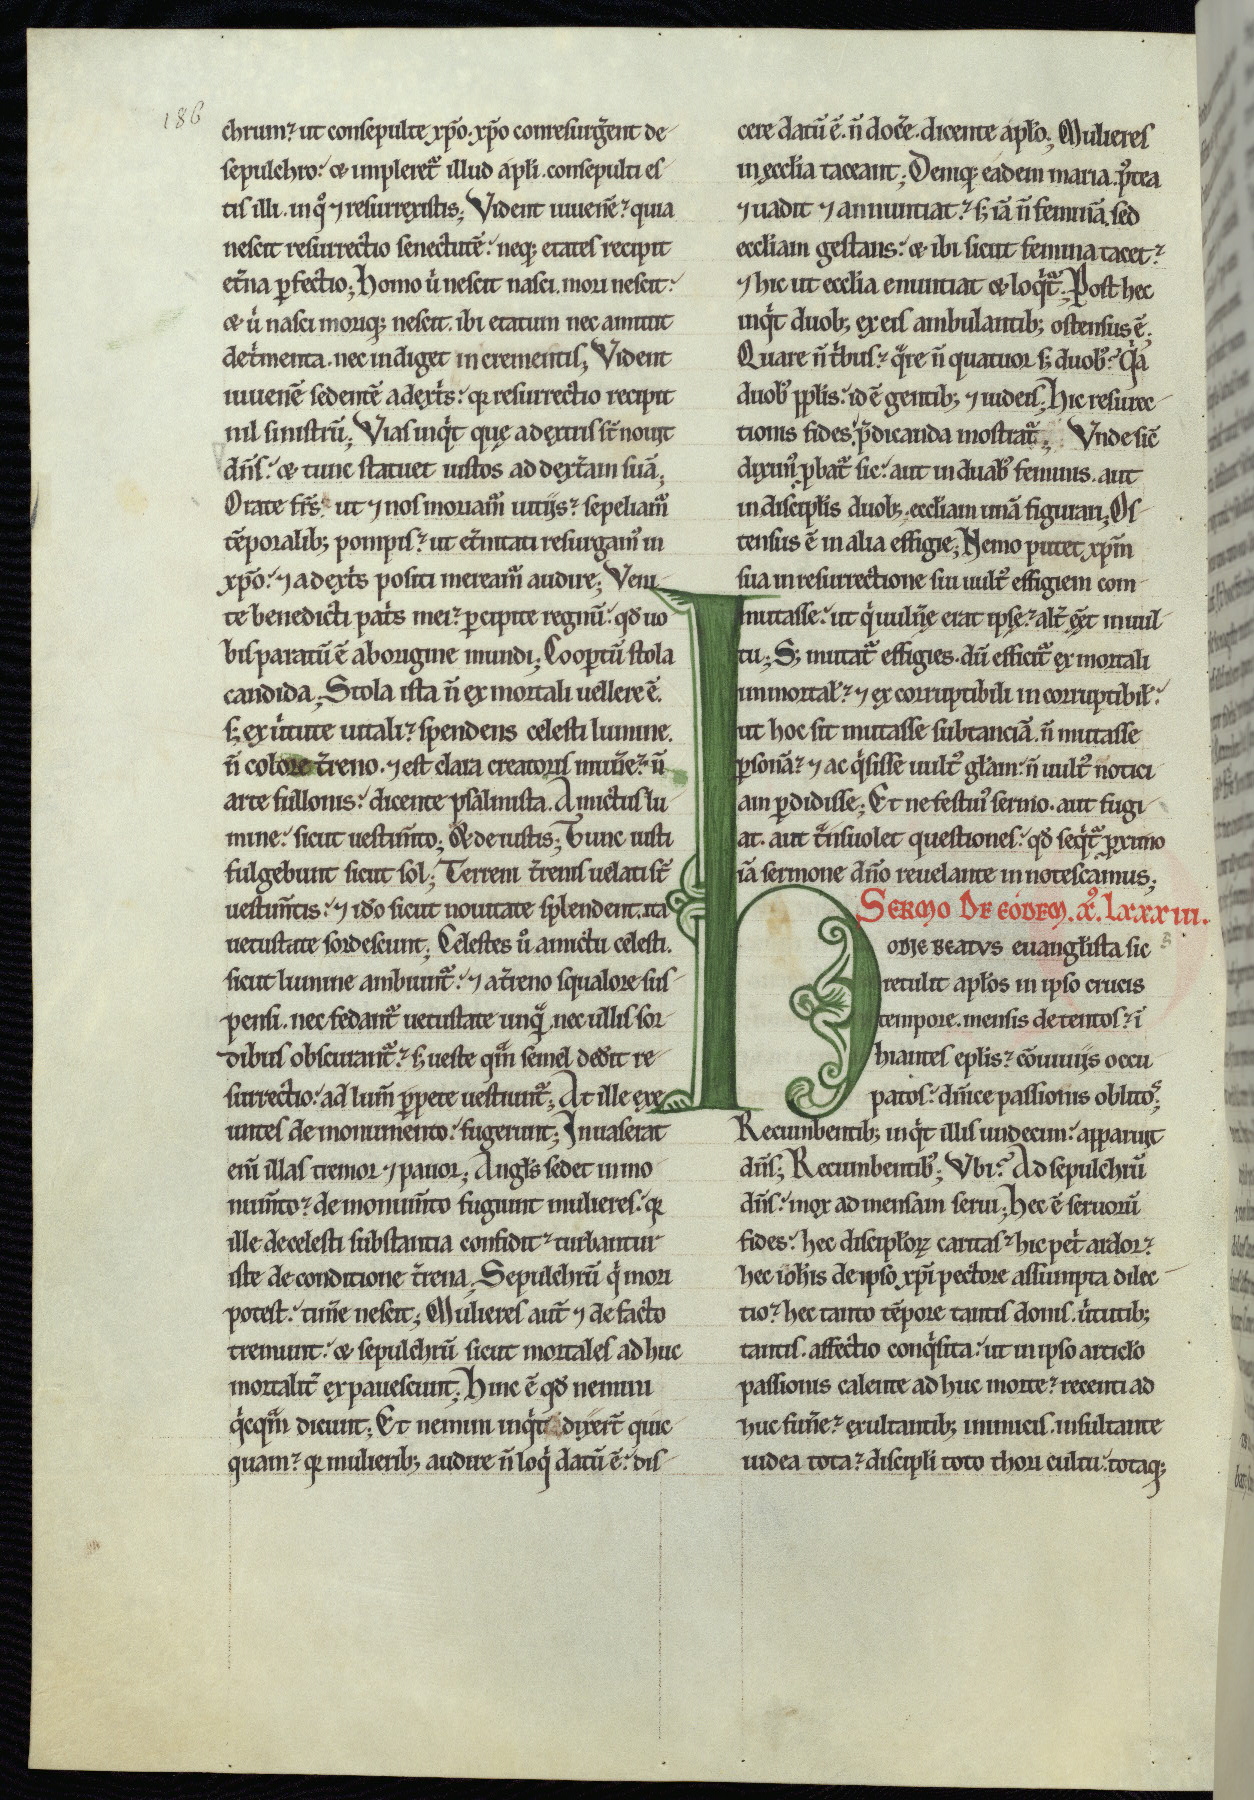 186
chrum? ut consepulte xp̄o. xp̄o conresurḡent de-
sepulchro: & impleret̄ illud apl̄i. consepulti es-
tis illi. in qͦ ⁊ resurrexistis; Vident iuuenē? quia
nescit resurrectio senectutē: neq; etates recipit
et̄na ꝑfectio; Homo u̇ nescit nasci. mori nescit:
& u̇ nasci moriq; nescit. ibi etatum nec amittit
det̄menta. nec indiget incrementis; Vident
iuuenē sedentē adext̄s: qꝛ resurrectio recipit
nil sinistrū; Vias inqͥt quę adextris st̄ nouit
dn̄s: & tunc statuet iustos ad dext̄am suā;
Orate fr̄s. ut ⁊ nos moriam᷒ uitijs? sepeliam᷒
tēporalib; pompis? ut et̄nitati resurgam᷒ in
xp̄o: ⁊ adext̄s positi meream᷒ audire; Veni-
te benedicti pat̄s mei? ꝑcipite regnū: qđ uo
bis paratū ē aborigine mundi; Cooꝑtū stola
candida; Stola ista n̄ ex mortali uellere ē.
s; ex ūtute uitali? spendens celesti lumine.
n̄ colore t̄reno. ⁊ est clara creatoris mun̄e? n̄
arte fullonis: dicente psalmista. Amictus lu
mine: sicut uestim̄to; & de iustis; Tunc iusti
fulgebunt sicut sol; Terreni t̄renis uelati st̄
uestim̄tis: ⁊ iđo sicut nouitate splendent. ita
uetustate sordescunt; Celestes u̇ amictu celesti.
sicut lumine ambiunt̄: ⁊ at̄reno squalore sus-
pensi. nec fedant̄ uetustate unqͣ. nec ullis sor
dibus obscurant̄? s; ueste qͣm semel dedit re-
surrectio: ad lum̄ ꝑpete uestiunt̄; At ille exe
untes de monumento: fugerunt; Inuaserat
enī illas tremor ⁊ pauor; Angl̄s sedet in mo
num̄to? de monum̄to fugiunt mulieres: qꝛ
ille decelesti substantia confidit? turbantur
iste de conditione t̄rena. Sepulchrū qͥ mori
potest: tim̄e nescit; Mulieres aut̄ ⁊ de facto
tremunt: & sepulchrū sicut mortales adhuc
mortalit̄ expauescunt; Hinc ē qđ nemini
qͥcqͣm dicunt; Et nemini inqͥt dixer̄t quic-
quam? qꝛ mulierib; audire n̄ loqͥ datū ē: dis-
cere datū ē. n̄ doc̄e. dicente apl̄o; Mulieres
in ęccl̄ia taceant; Deniq; eadem maria. p᷒tea
⁊ uadit ⁊ annuntiat? s; iā n̄ feminā. sed
eccl̄iam gestans: & ibi sicut femina tacet?
⁊ hic ut eccl̄ia enuntiat & loqͥt̄; Post hec
inqͥt duob; ex eis ambulantib; ostensus ē.
Quare n̄ tͥbus? qͣre n̄ quatuor s; duob᷒? Qͥa
duob᷒ ppl̄is: id ē gentib; ⁊ iudeis; Hic resurec-
tionis fides. p̄dicanda mostrat̄; Vnde sic̄
dixim᷒ ꝓbat̄ sic: aut in duab᷒ feminis. aut
in discipl̄is duob; eccl̄iam unā figurari; Os-
tensus ē in alia effigie; Nemo putet xp̄m
sua in resurrectione sui uult᷒ effigiem com-
mutasse: ut qͥ uuln̄e erat ipse? alt̄ ēēt in uul
tu; S; mutat̄ effigies. dū efficit̄ ex mortali
inmortał? ⁊ ex corruptibili incorruptibił:
ut hoc sit mutasse substanciā. n̄ mutasse
ꝑsonā? ⁊ ac qͥsisse uult᷒ gl̄am: n̄ uult᷒ notici
am ꝑdidisse; Et ne festiu᷒ sermo. aut fugi-
at. aut tͣnsuolet questiones: qđ seqͥt̄ ꝓximo
iā sermone dn̄o reuelante innotescamus;
Sermo de eodem. x͛. lxxxiii.
Hodie beatvs euangl̄ista sic
retulit apl̄os in ipso crucis
tempore. mensis detentos? ī
hiantes epl̄is? cōuiuijs occu
patos: dn̄ice passionis oblito᷒;
Recumbentib; inqͥt illis undecim: apparuit
dn̄s; Recumbentib᷒; Vbi? Ad sepulchrū
dn̄s: mox ad mensam serui; Hec ē seruorū
fides: hec discipl̄oꝝ caritas? hic pet̄ ardor?
hec ioh̄is de ipso xp̄i pectore assumpta dilec-
tio? hec tanto tēpore tantis donis. ūtutib;
tantis. affectio conqͥsita: ut in ipso articl̄o
passionis calente adhuc morte? recenti ad
huc fun̄e? exultantib; inimicis. insultante
iudea tota? discipl̄i toto thori cultu: totaq;